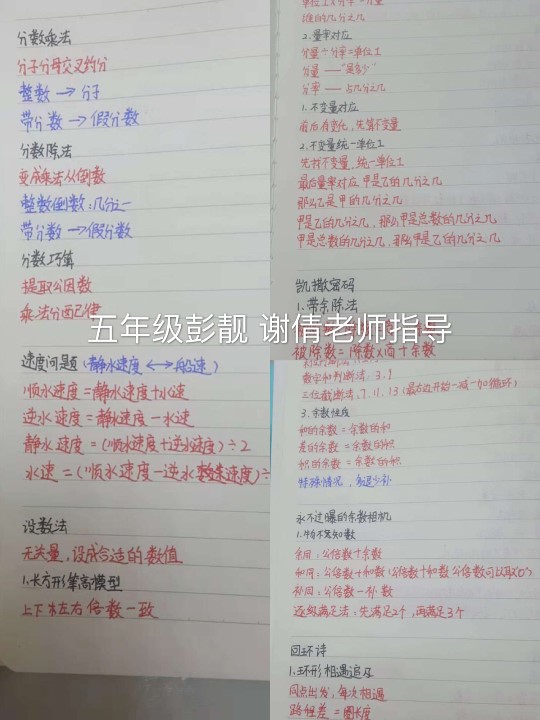 分数乘法
分子分母交叉约分
整数→分子
带分数→假分数
分数除法
变成乘法从倒数
整数倒数:几分之一
带分数→假分数
分数巧算
提取公因数
乘法分配律
速度问题(静水速度←→船速)
顺水速度=静水速度+水速
逆水速度=静水速度-水速
静水速度=(顺水速度+逆水速度)÷2
水速=(顺水速度-逆水速度)÷
设数法
无关量,设成合适的数值
1.长方形等高模型
上下左右倍数一致
谁的几分之几
2.量率对应
分量÷分率=单位1
分量——"是多少"
分率——占几分之几
1.不变量对应
前后有变化,先算不变量
2.不变量统一单位1
先找不变量,统一单位1
最后量率对应.甲是乙的几分之几
那么乙是甲的几分之几
甲是乙的几分之几,那么甲是总数的几分之几
甲是总数的几分之几,那么甲是乙的几分之几
凯撒密码
1.带余除法
五年级彭靓 谢倩老师指导
被除数=除数×商+余数
数字和判断法:3.9
三位截断法:7.11.13(最右边开始一减一加循环)
3.余数性质
和的余数=余数的和
差的余数=余数的差
积的余数=余数的积
特殊情况,多退少补
永不过曝的余数相机
1.物不知数
余同:公倍数+余数
和同:公倍数+和数(公倍数+和数 公倍数可以取"0")
补同:公倍数-补数
逐级满足法:先满足2个,再满足3个
回环诗
1.环形相遇追及
同点出发,每次相遇
路程差=圈长度